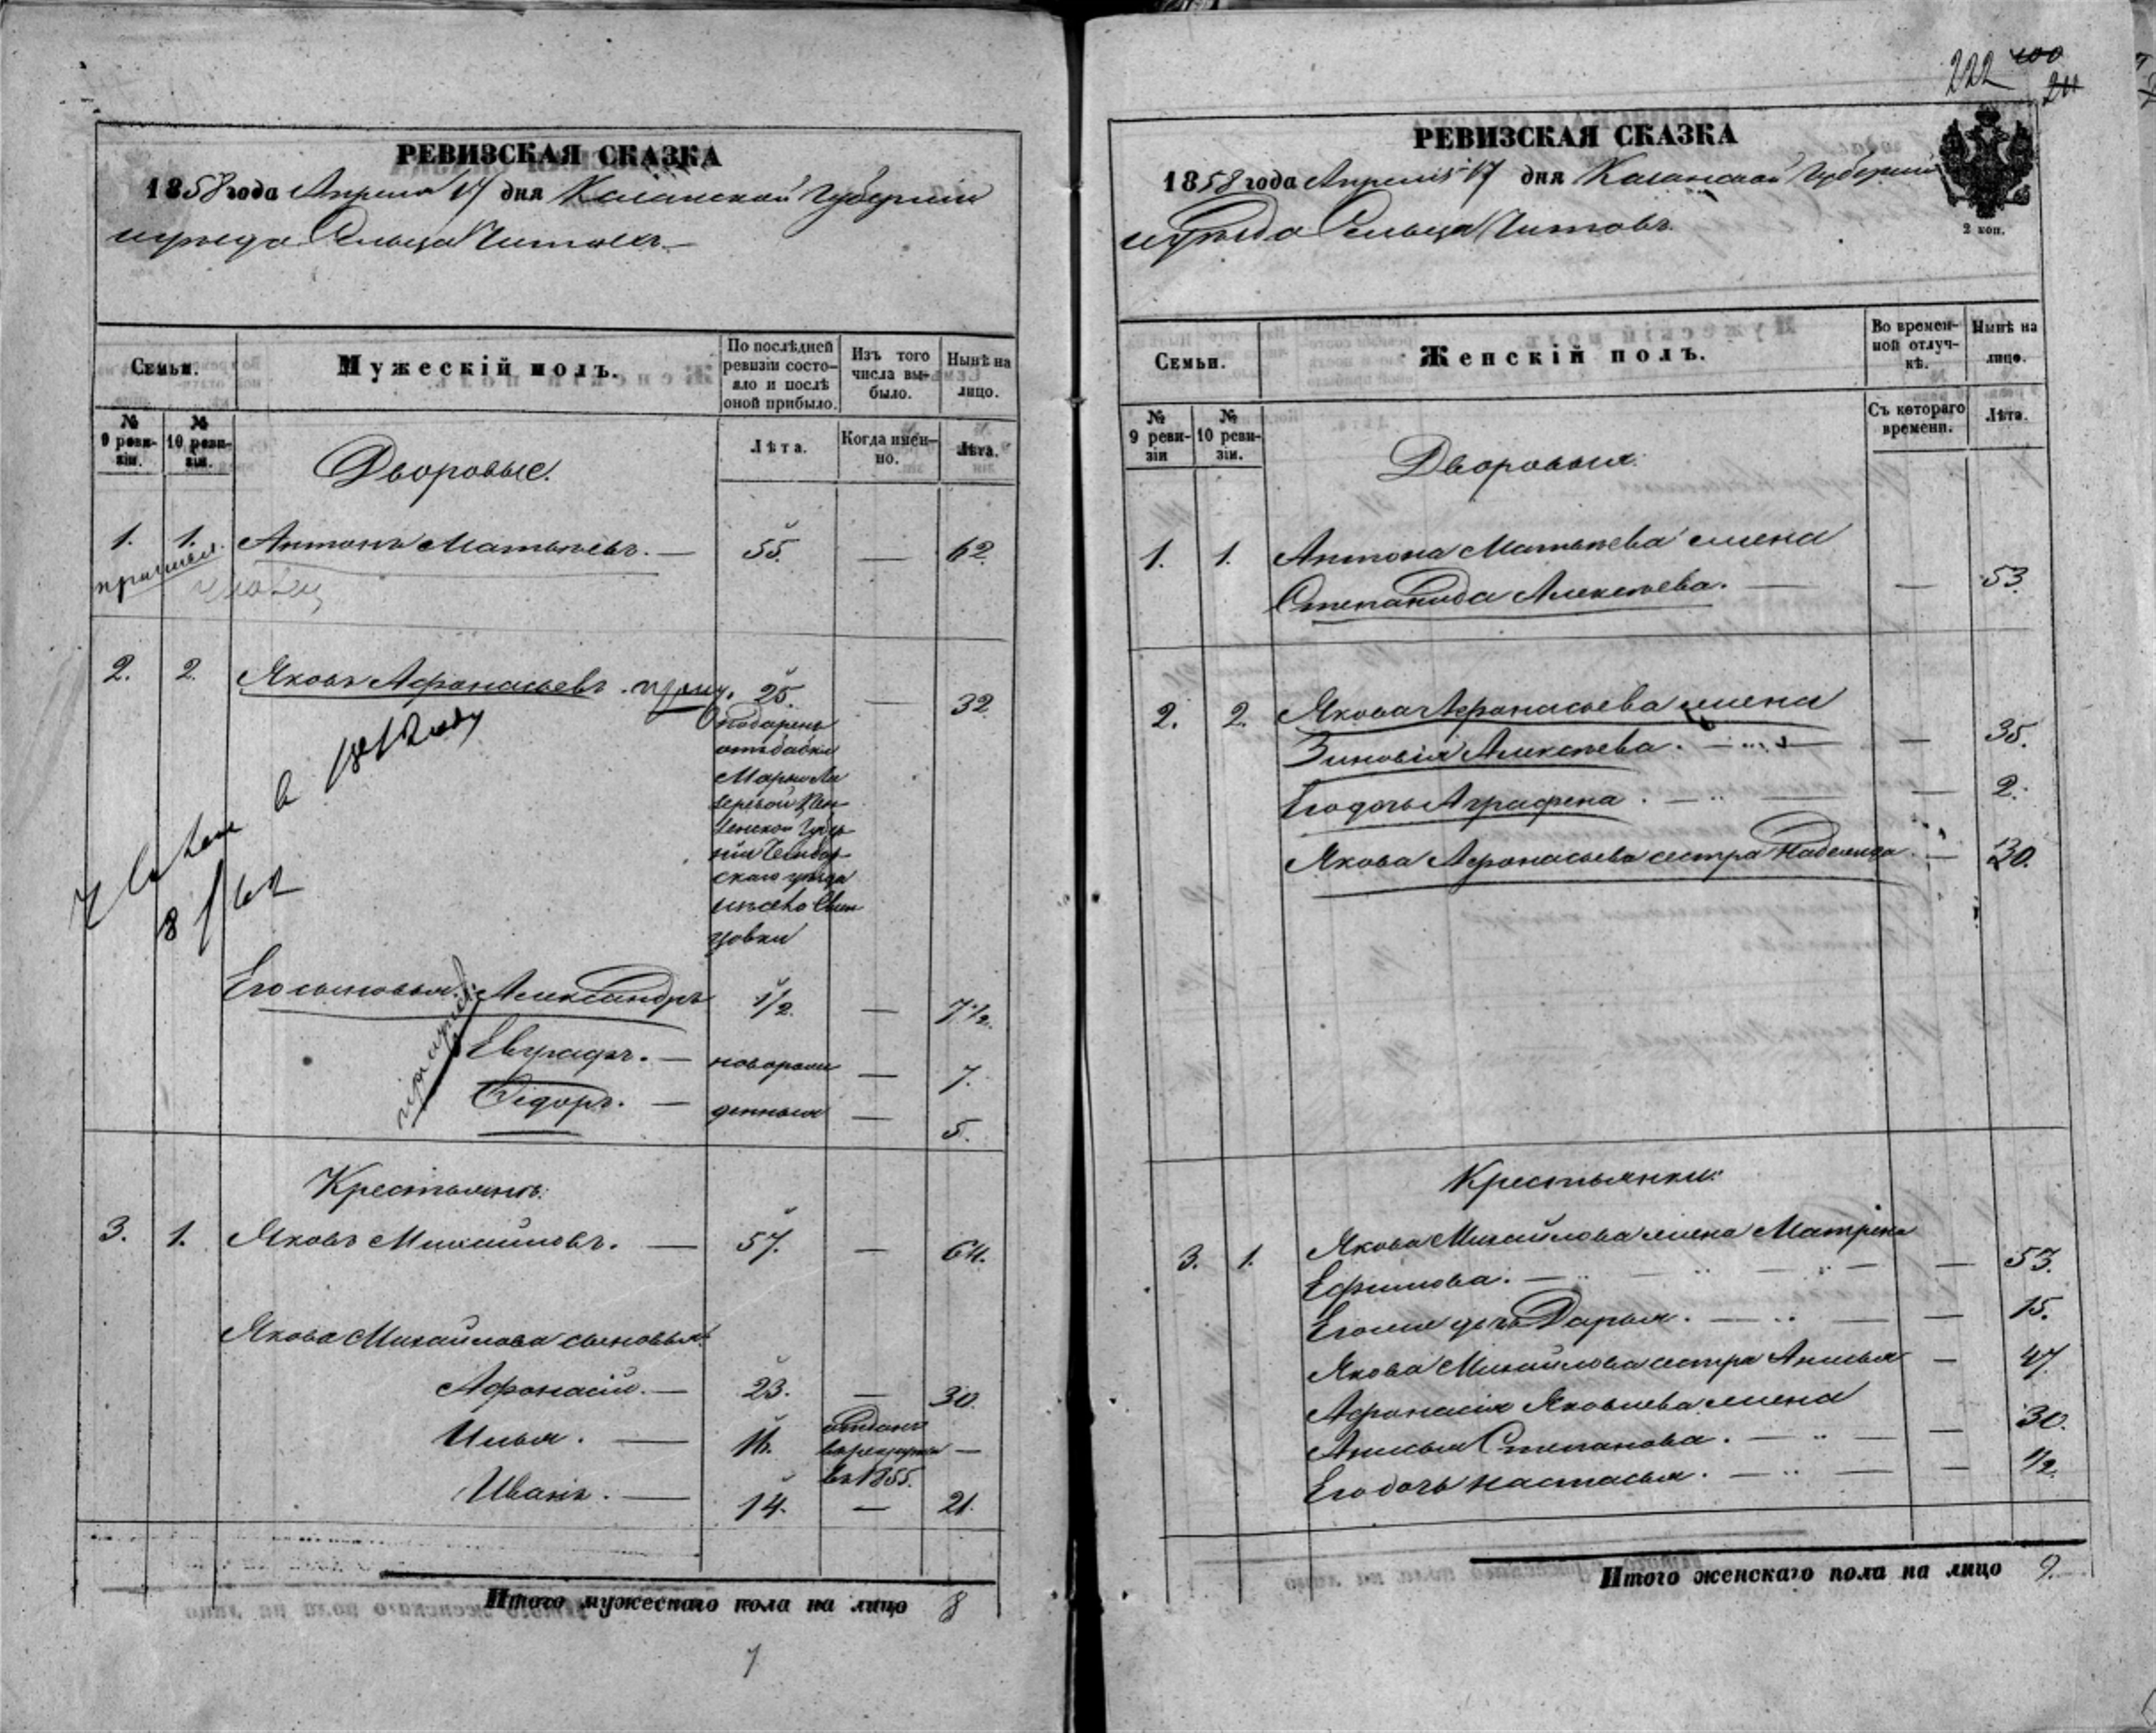 222 100
211
РЕВИЗСКАЯ СКАЗКА
1858 года Апреля 17 дня Казанской Губерніи
уѣзда Сельца Читовъ
Семьи.
Мужескій полъ.
По послѣдней ревизіи состо-
яло и послѣ
оной прибыло.
Изъ того
числа вы-
было.
Нынѣ на
лицо.
№
9 реви-
зіи.
№
10 реви-
зіи.
Лѣта.
Когда имен-
но.
Лѣта.
Дворовые.
1. 1. Антонъ Матвѣевъ. — 55. — 62.
2. 2. Яковъ Афонасьевъ. 25. — 32.
подаренъ
Марьи
Пен-
зенской Губер-
ніи Чембар-
скаго уѣзда
в 1862 году
8 / 62
Его сыновья: Александръ 1/2. — 7 1/2.
Евграфъ. — новорож — 7.
Сидоръ. — денныя — 5.
Крестьянъ:
3. 1. Яковъ Михайловъ. — 57. — 64.
Якова Михайлова сыновья:
Афонасій. — 23. — 30.
Илья. — 16. отданъ
в рекруты —
въ 1855.
Иванъ. — 14. — 21.
Итого мужескаго пола на лицо 8
7
РЕВИЗСКАЯ СКАЗКА
1858 года Апреля 17 дня Казанской Губерніи
уѣзда Сельца Читовъ.
2 коп.
Семьи.
Женскій полъ.
Во времен-
ной отлуч-
кѣ.
Нынѣ на
лицо.
№
9 реви-
зіи
№
10 реви-
зіи.
Съ котораго
времени.
Лѣта.
Дворовыя:
1. 1. Антона Матвѣева жена
Степанида Алексѣева. — — 53.
2. 2. Якова Афонасьева жена
Зиновія Алексѣева. — — 35.
Его дочь Аграфена. — — 2.
Якова Афонасьева сестра Надежда — 30.
Крестьянки:
3. 1. Якова Михайлова жена Матрена
Ефимова. — — 53.
Его же дочь Дарья. — — 15.
Якова Михайлова сестра Анисья — 47.
Афонасія Яковлева жена
Анисья Степанова. — — 30.
Его дочь Настасья. — — 1/2.
Итого женскаго пола на лицо 9.